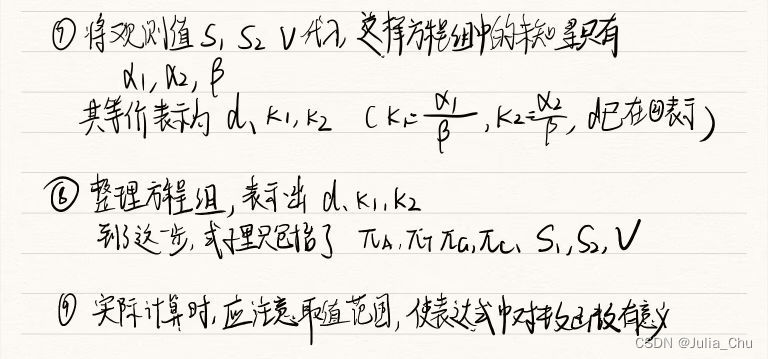 ⑦ 将观测值 S₁ S₂ V 代入, 这样方程组中的未知量只有
α₁, α₂, β
其等价表示为 d、κ₁, κ₂ (κ₁=α₁/β, κ₂=α₂/β, d已在④表示)
⑧ 整理方程组, 表示出 d、κ₁, κ₂
到了这一步, 式子里只包括了 π_A, π_T π_G, π_C、S₁, S₂, V
⑨ 实际计算时, 应注意取值范围, 使表达式中对数函数有意义
CSDN @Julia_Chu